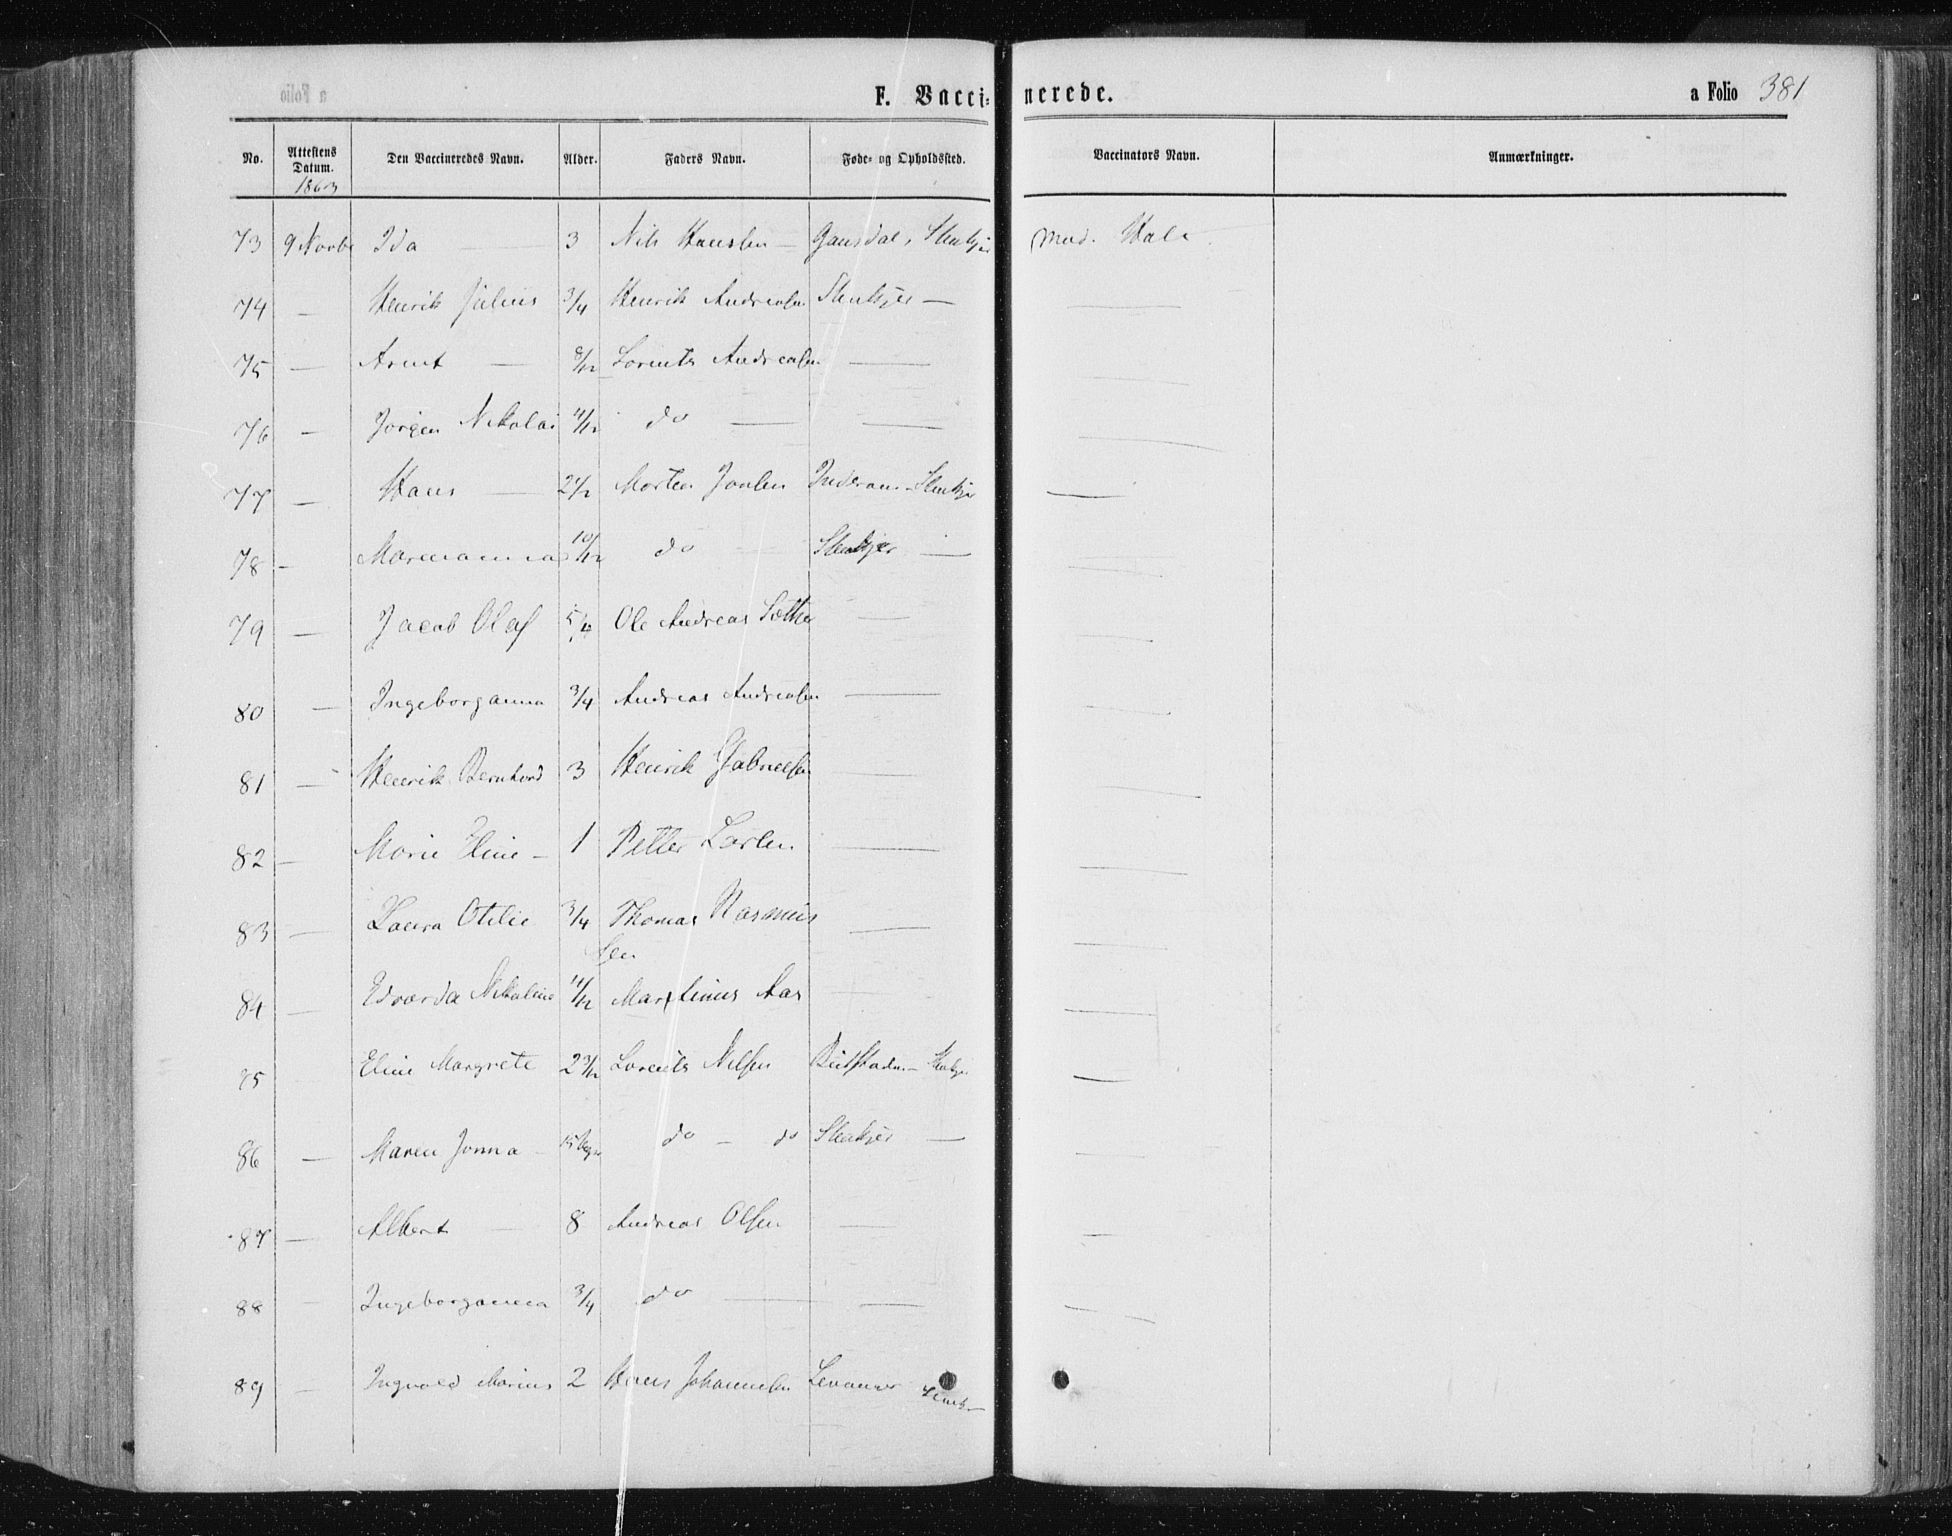 F. Vacci-nerede.
a Folio 381
No. Attestens Datum. Den Vaccineredes Navn. Alder. Faders Navn. Føde- og Opholdssted. Vaccinators Navn. Anmærkninger.
1863
73 9 Novbr Ida — 3 Nils Hansen — Stenkjer
74 — Henrik Julius 3/4 Henrik Andreasen Stenkjer —
75 — Arent — 8/12 Lorents Andreasen —
76 — Jørgen Nikolai 11/12 do — —
77 — Hans — Morten Jonsen Inderøen - Stenkjer —
78 — Marenanna 10/12 do — Stenkjer — —
79 — Jacob Olaf 5/4 Ole Andreas Sæther — —
80 — Ingeborganna 3/4 Andreas Andreasen — —
81 — Henrik Bernhard 3 Henrik Gabrielsen — —
82 — Marie Eline — 1 Petter Larsen — —
83 — Laura Otilie 3/4 Thomas Rasmus — —
sen
84 — Edvarda Nikoline 11/12 Martinus Aas — —
85 Eline Margrete 2 Lorents Nilsen Beitstaden - Stenkjer —
86 — Maren Jonna — do — do Stenkjer — —
87 — Albert — 8 Andreas Olsen — —
88 — Ingeborganna 3/4 do — — —
89 — Ingvald Marius 2 Hans Johannesen Levanger Stenkj